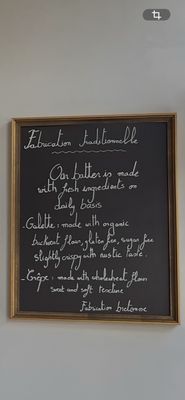 Fabrication traditionnelle
Our batter is made
with fresh ingredients on
daily basis
- Galette : made with organic
buckweat flour, gluten free, sugar free
slightly crispy with rustic taste.
- Crêpe : made with wholewheat flour
sweet and soft texture
Fabrication bretonne